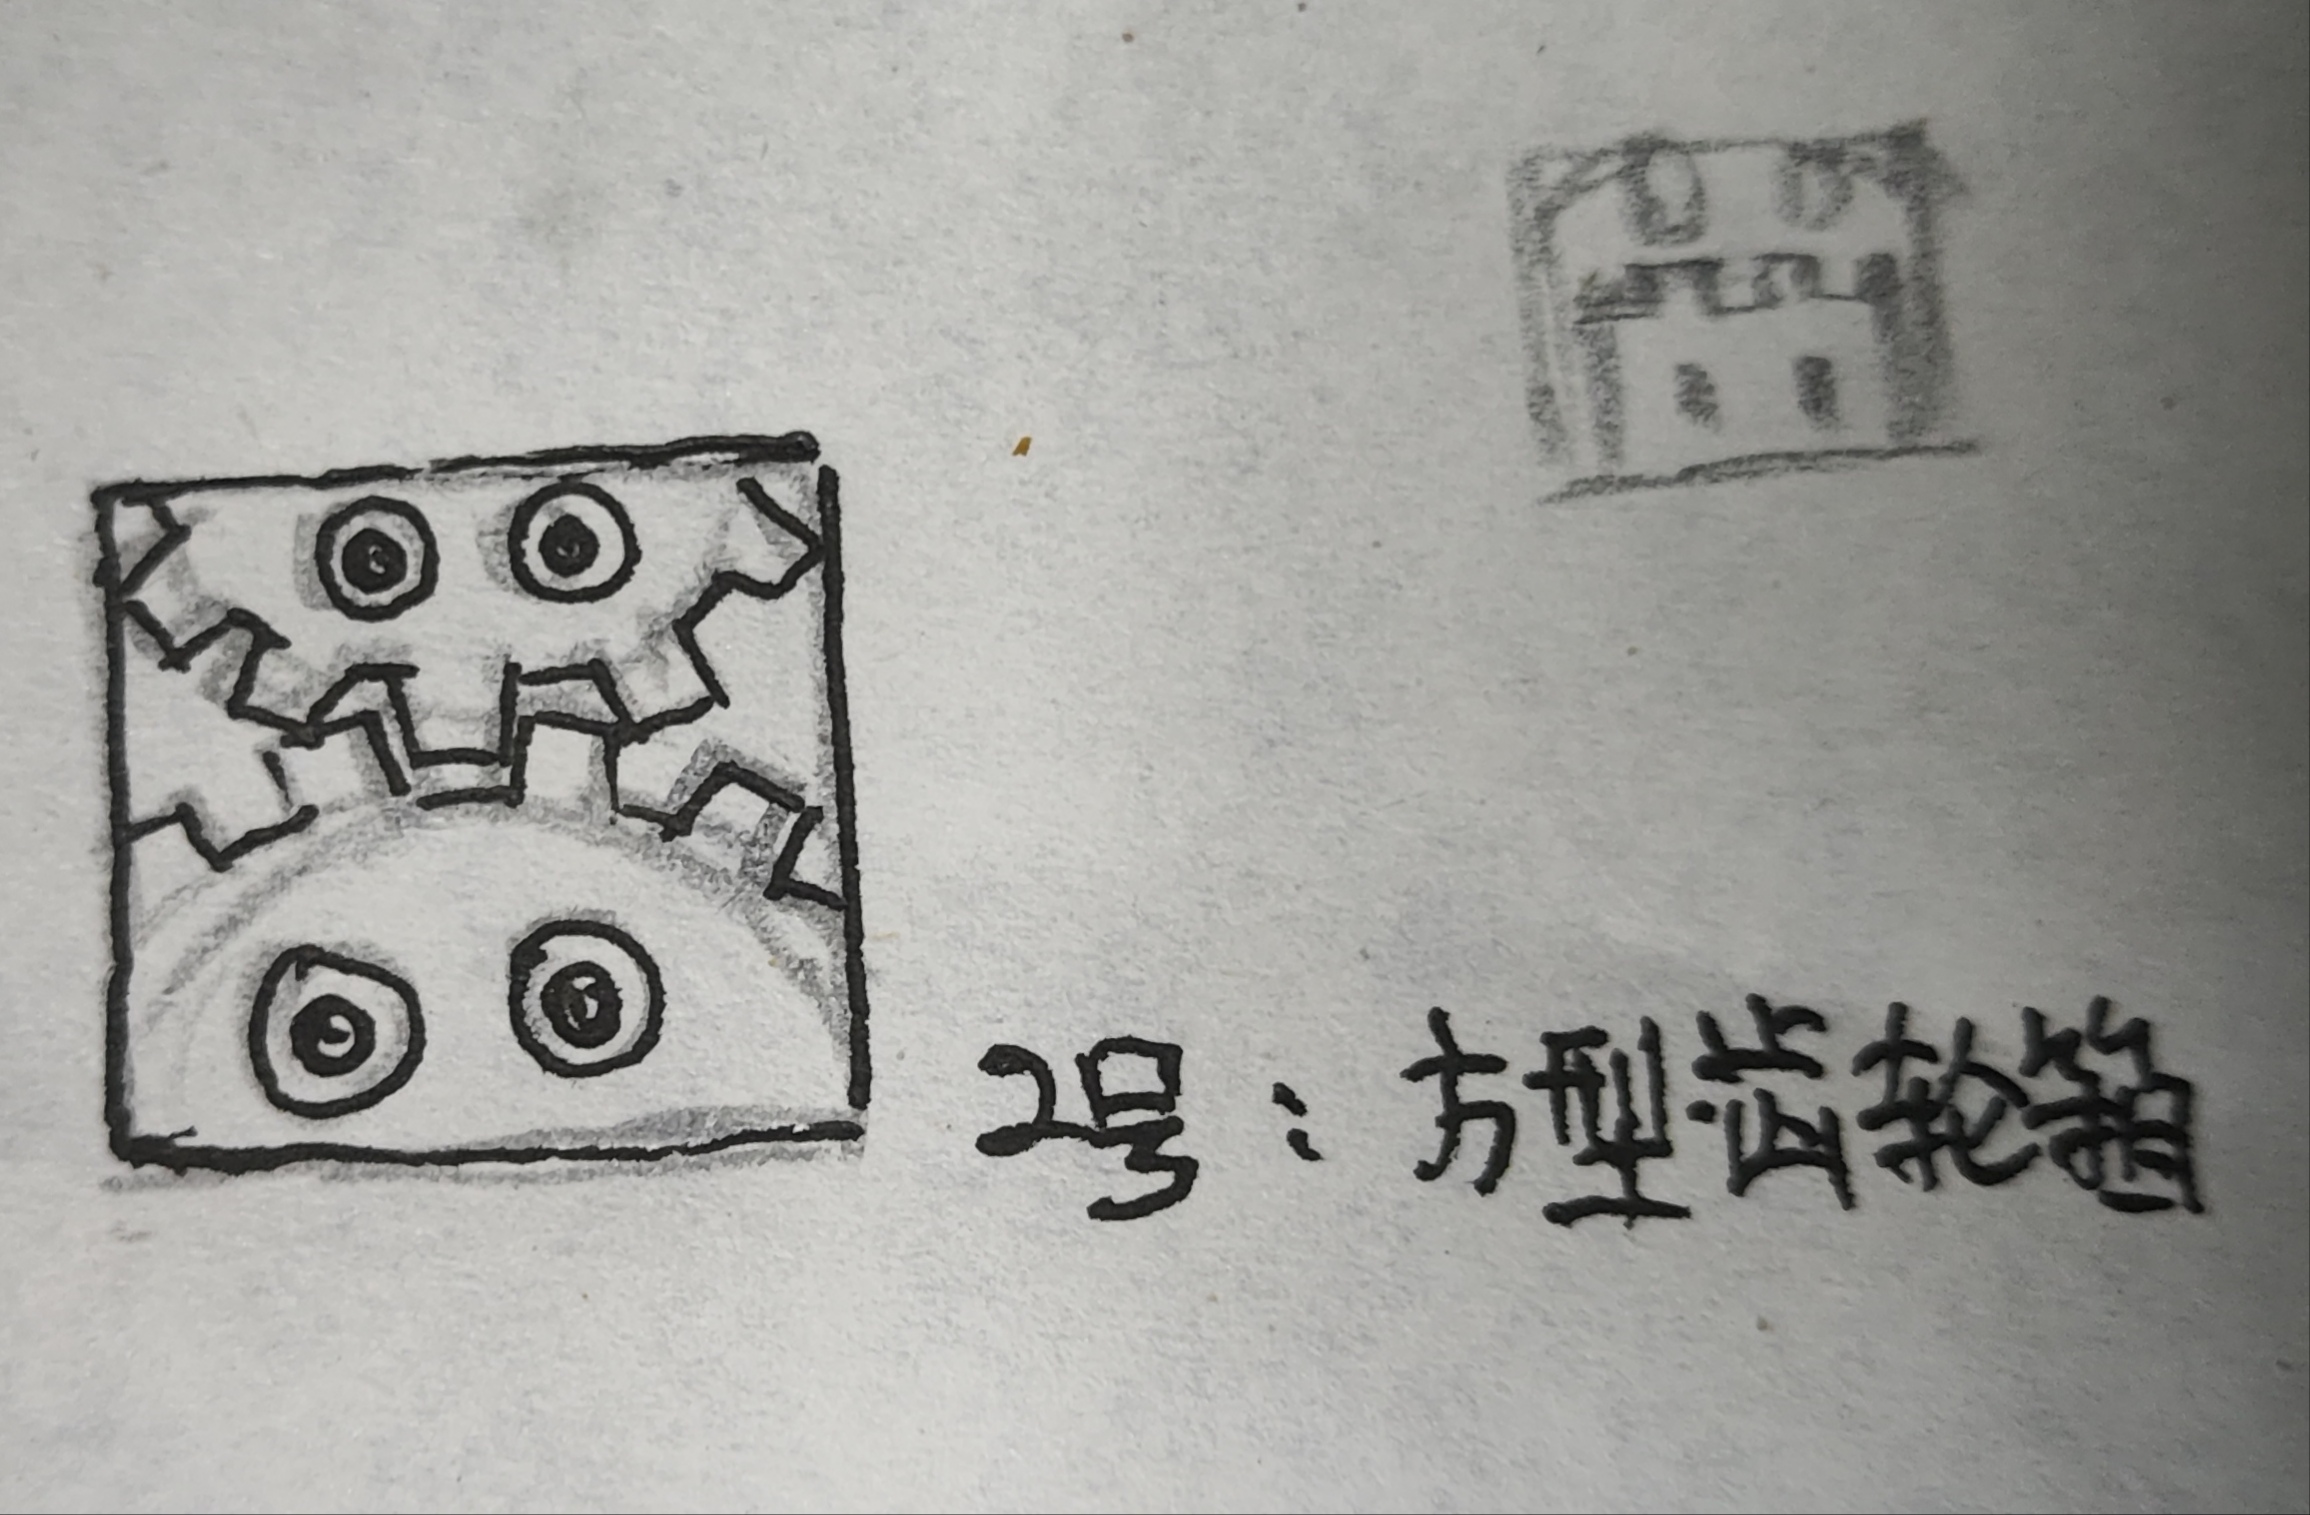 2号：方型齿轮箱